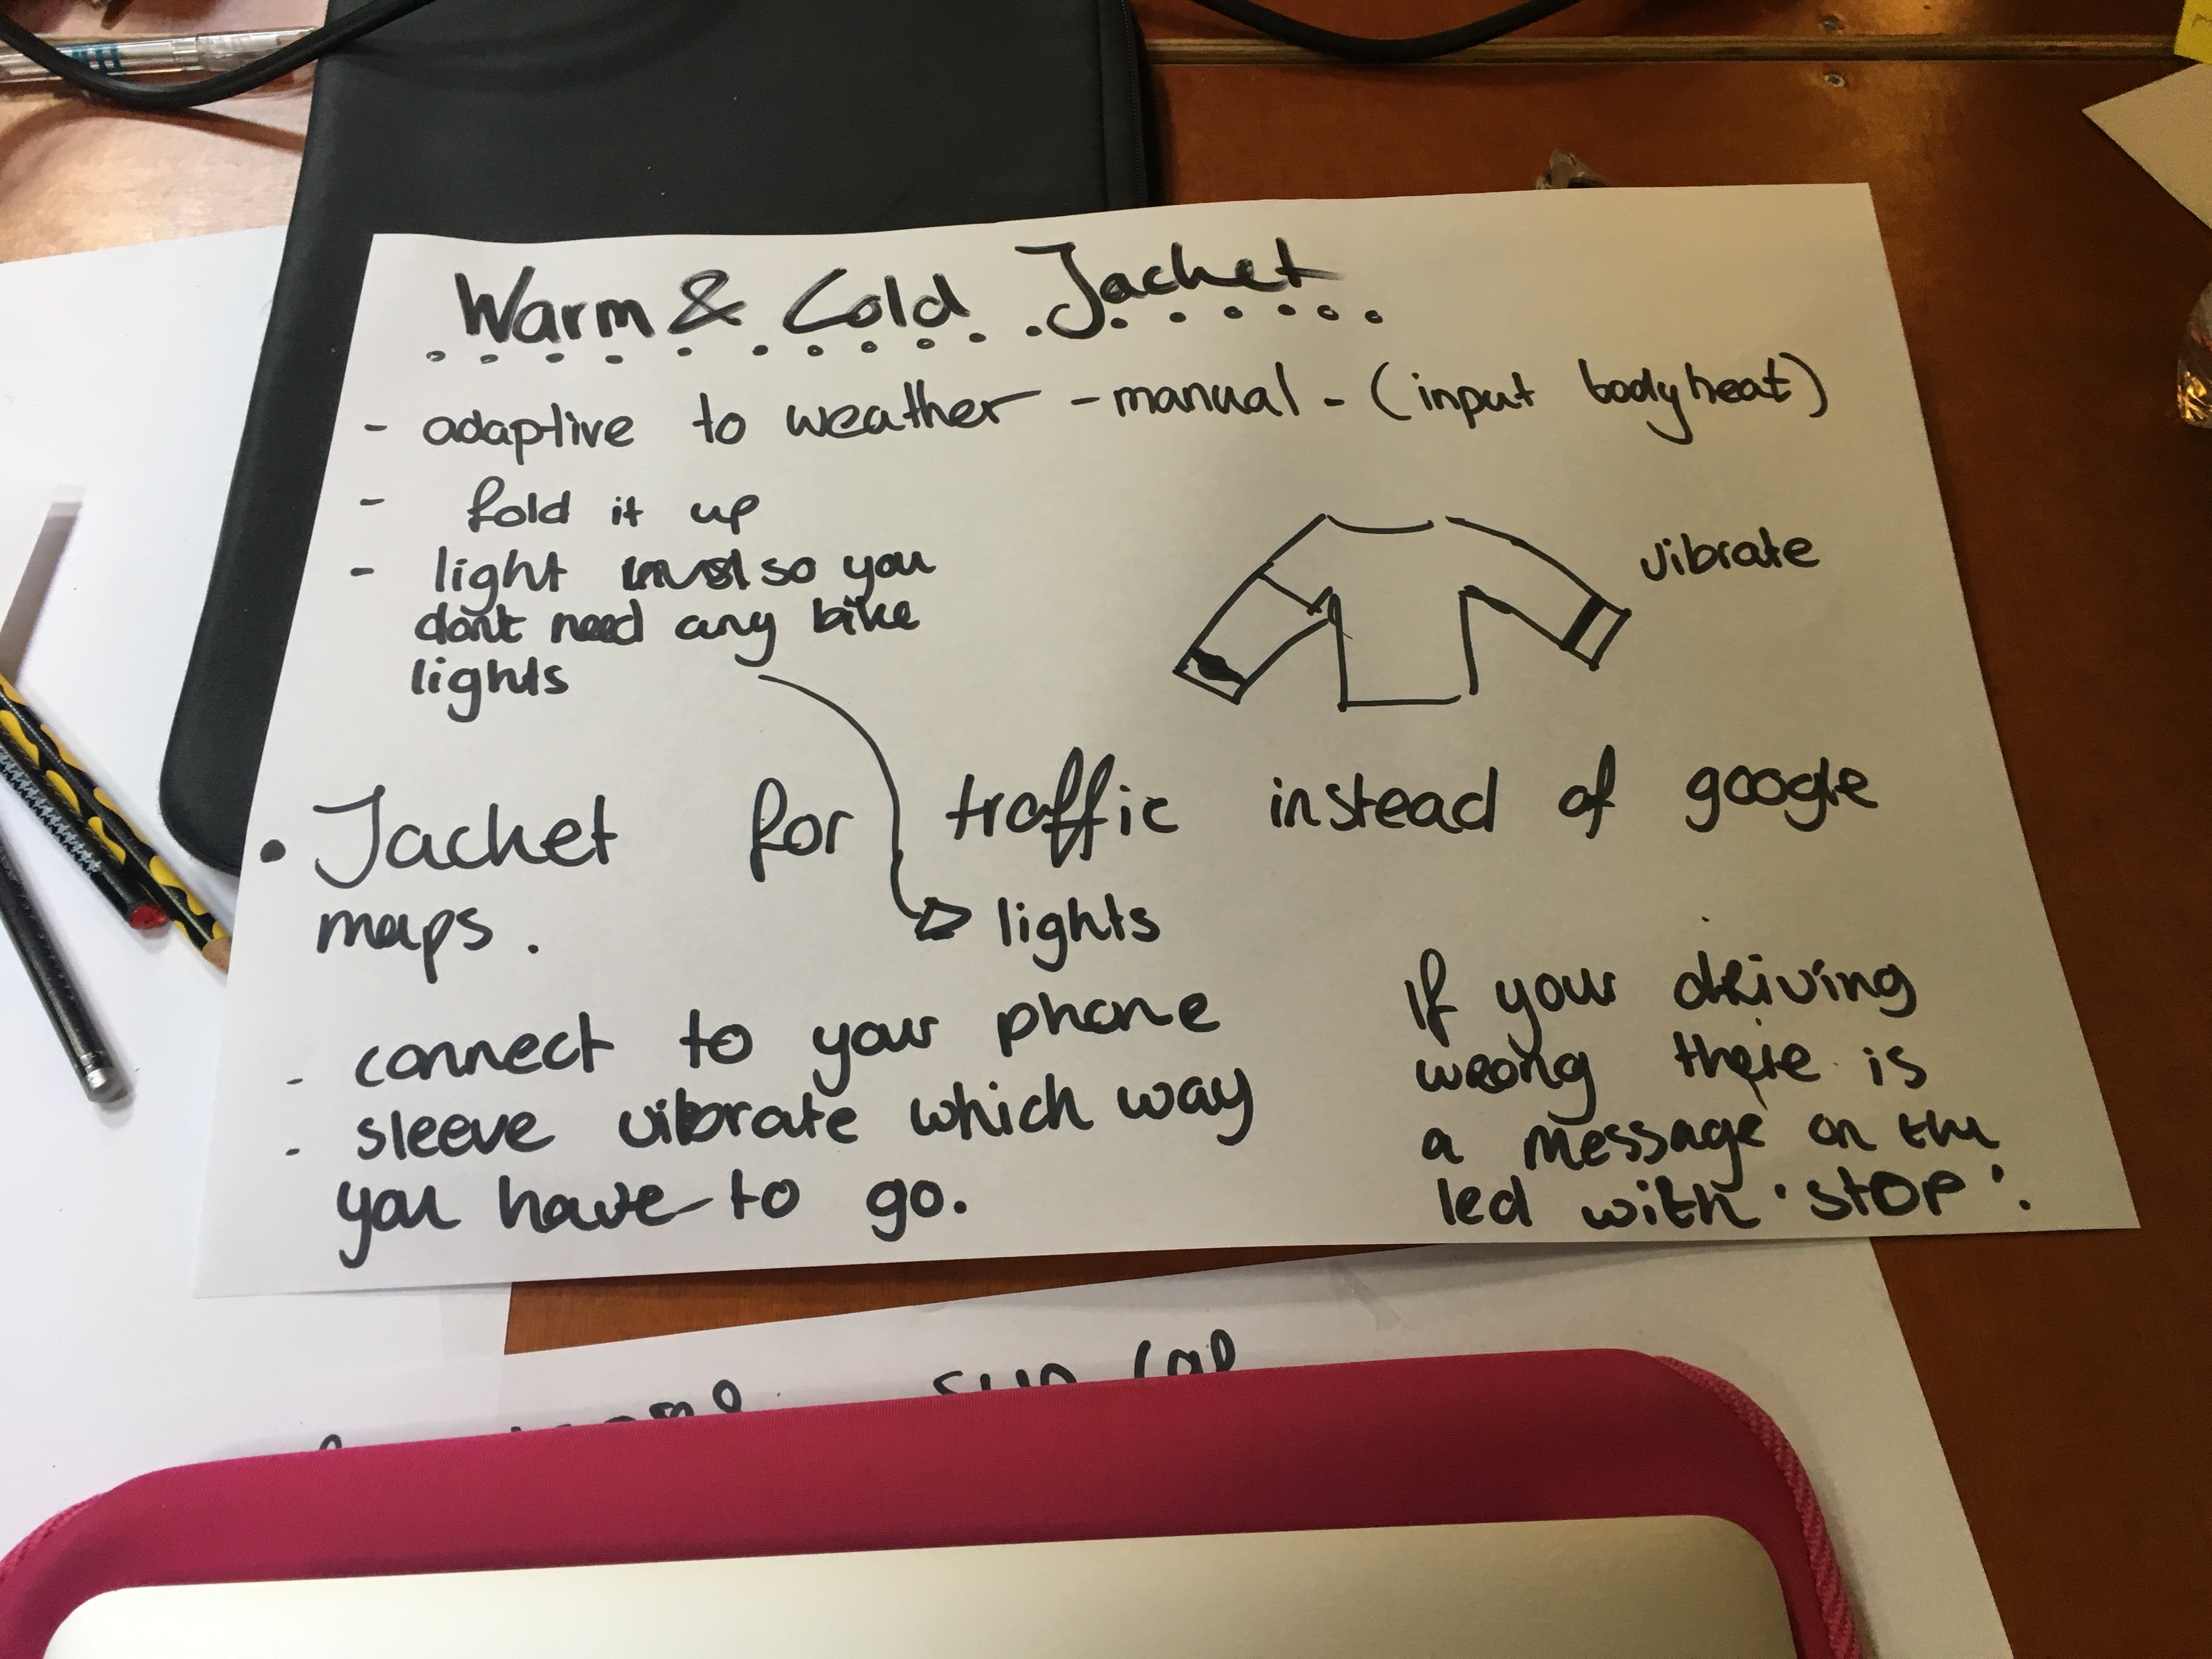 Warm & Cold Jacket
- adaptive to weather - manual - (input bodyheat)
- fold it up
- light so you
dont need any bike
lights
vibrate
• Jacket for traffic instead of google
maps.
lights
- connect to your phone
- sleeve vibrate which way
you have to go.
If your driving
wrong there is
a message on the
led with 'STOP'.
sun cap